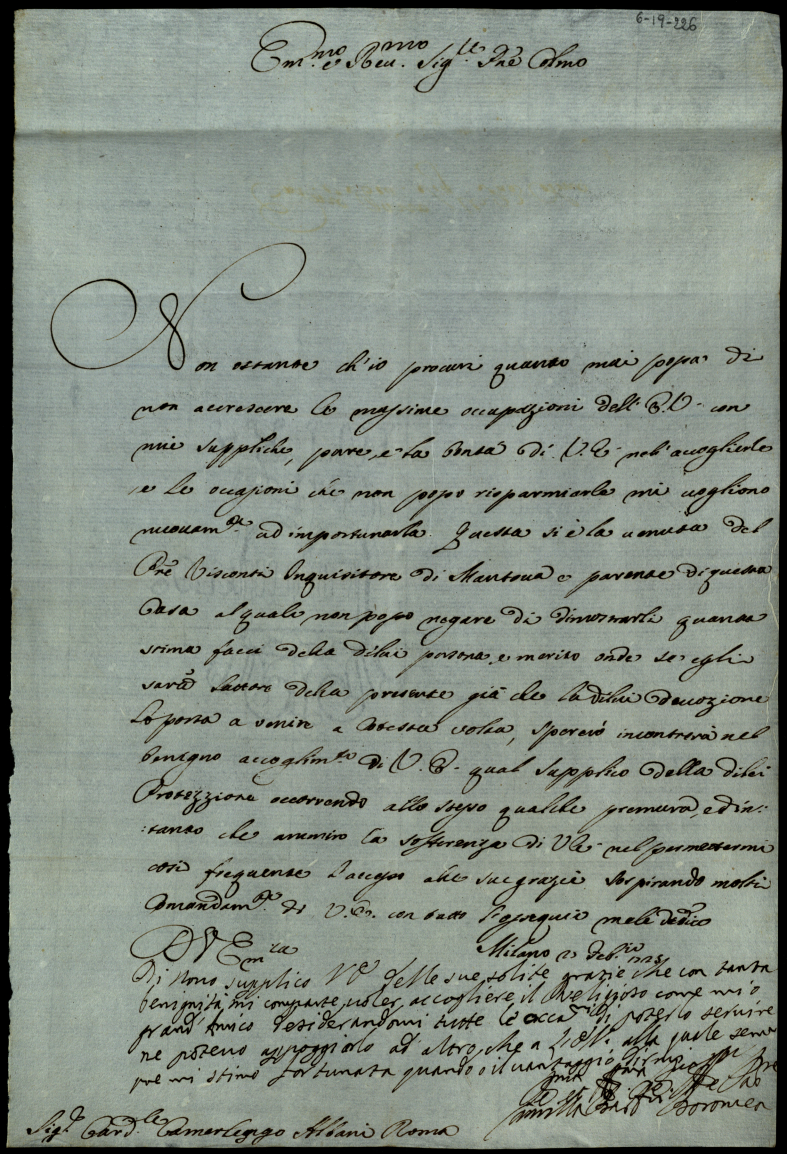 6-19-226
Em.mo e Rev.mo Sig.re Pnē Colmo
Non ostante ch'io procuri quanto mai posso di
non accrescere le massime occupazioni dell' E.V. con
mie suppliche, pure, e la bontà di V.E. nell'accoglierle
e le occasioni che non posso risparmiarle mi vogliono
nuovam.te ad importunarla. Questa si è la venuta del
Prē Visconti Inquisitore di Mantova e parente di questa
Casa al quale non posso negare di dimostrarli quanta
stima facci della dilui persona, e merito onde se egli
sarà lattore della presente già che la dilui devozione
Lo porta a venire a cotesta volta, sperciò incontrerà nel
benigno accoglim.to di V.E. qual supplico della dilei
Protezzione occorrendo allo stesso qualche premura, ed in:
:tanto che ammiro la sofferenza di VE nel permettermi
così frequente l'accesso alle sue grazie sospirando molti
Comandam.ti di V.E. con tutto l'ossequio mele dedico
D V Em.za Milano 2 Feb.ro
Di novo supplico VE delle sue solite grazie che con tanta
benignità mi comparte, voler accogliere il Religioso come mio
grand Amico desiderandomi tutte le occa.ni di poterlo servire
ne potevo appoggiarlo ad altro, che a alla quale sem
pre mi stimo fortunata quando o il vantaggio
Camilla Borromea
Sig.r Card.le Camerlengo Albani Roma